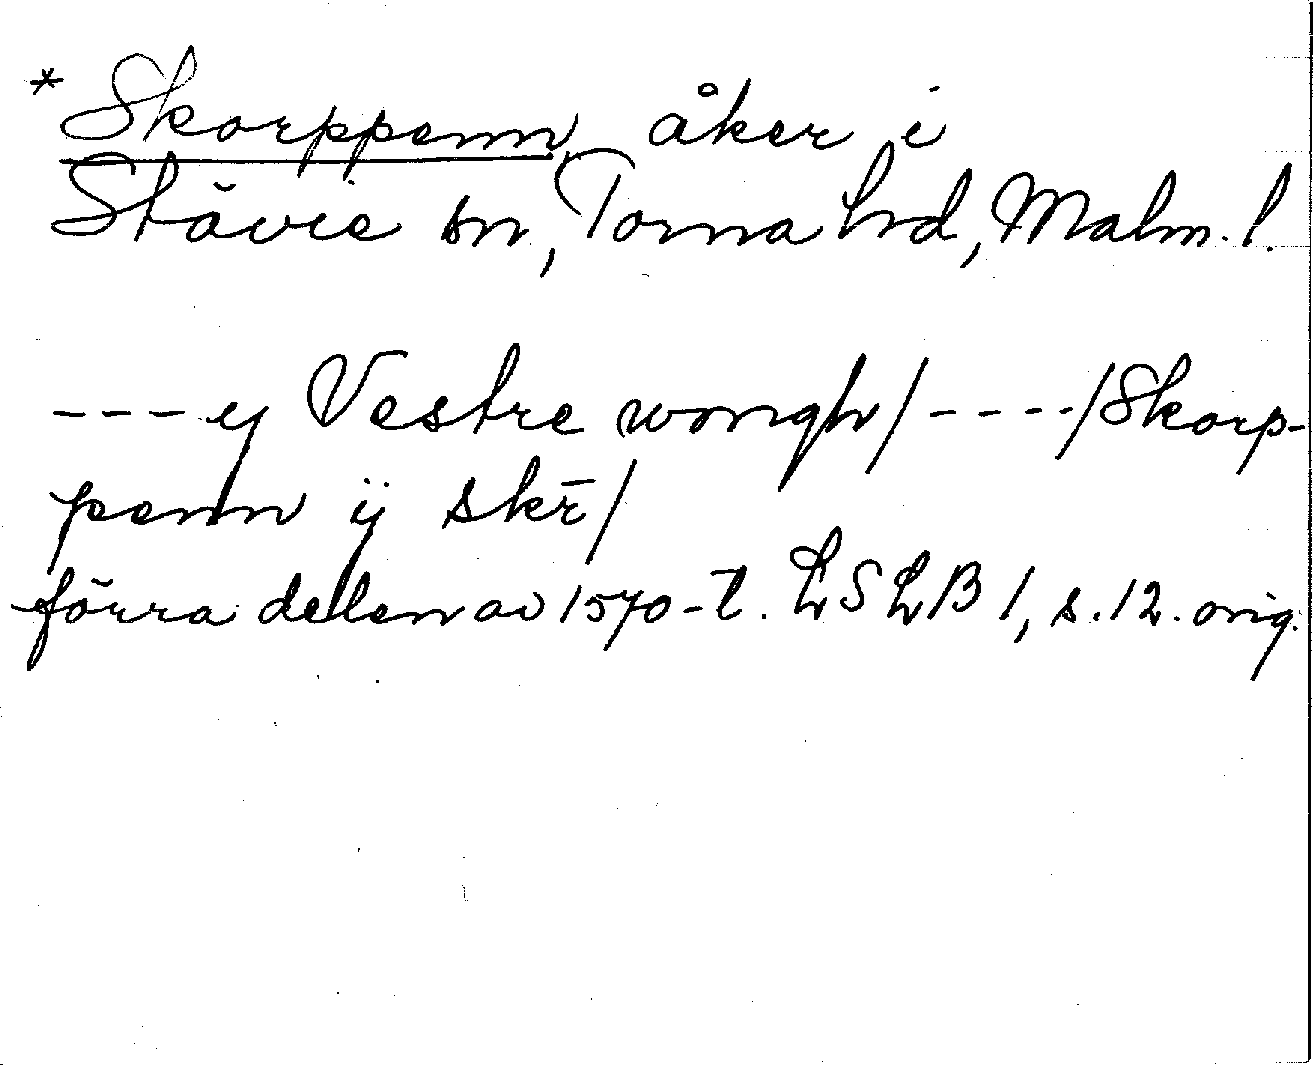 * Skorppenn, åker i
Stävie sn, Torna hrd, Malm. l.
---y Vestre wongh/----/Skorp-
penn ij skr̄/
förra delen av 1570-t. LSLB 1, s. 12. orig.